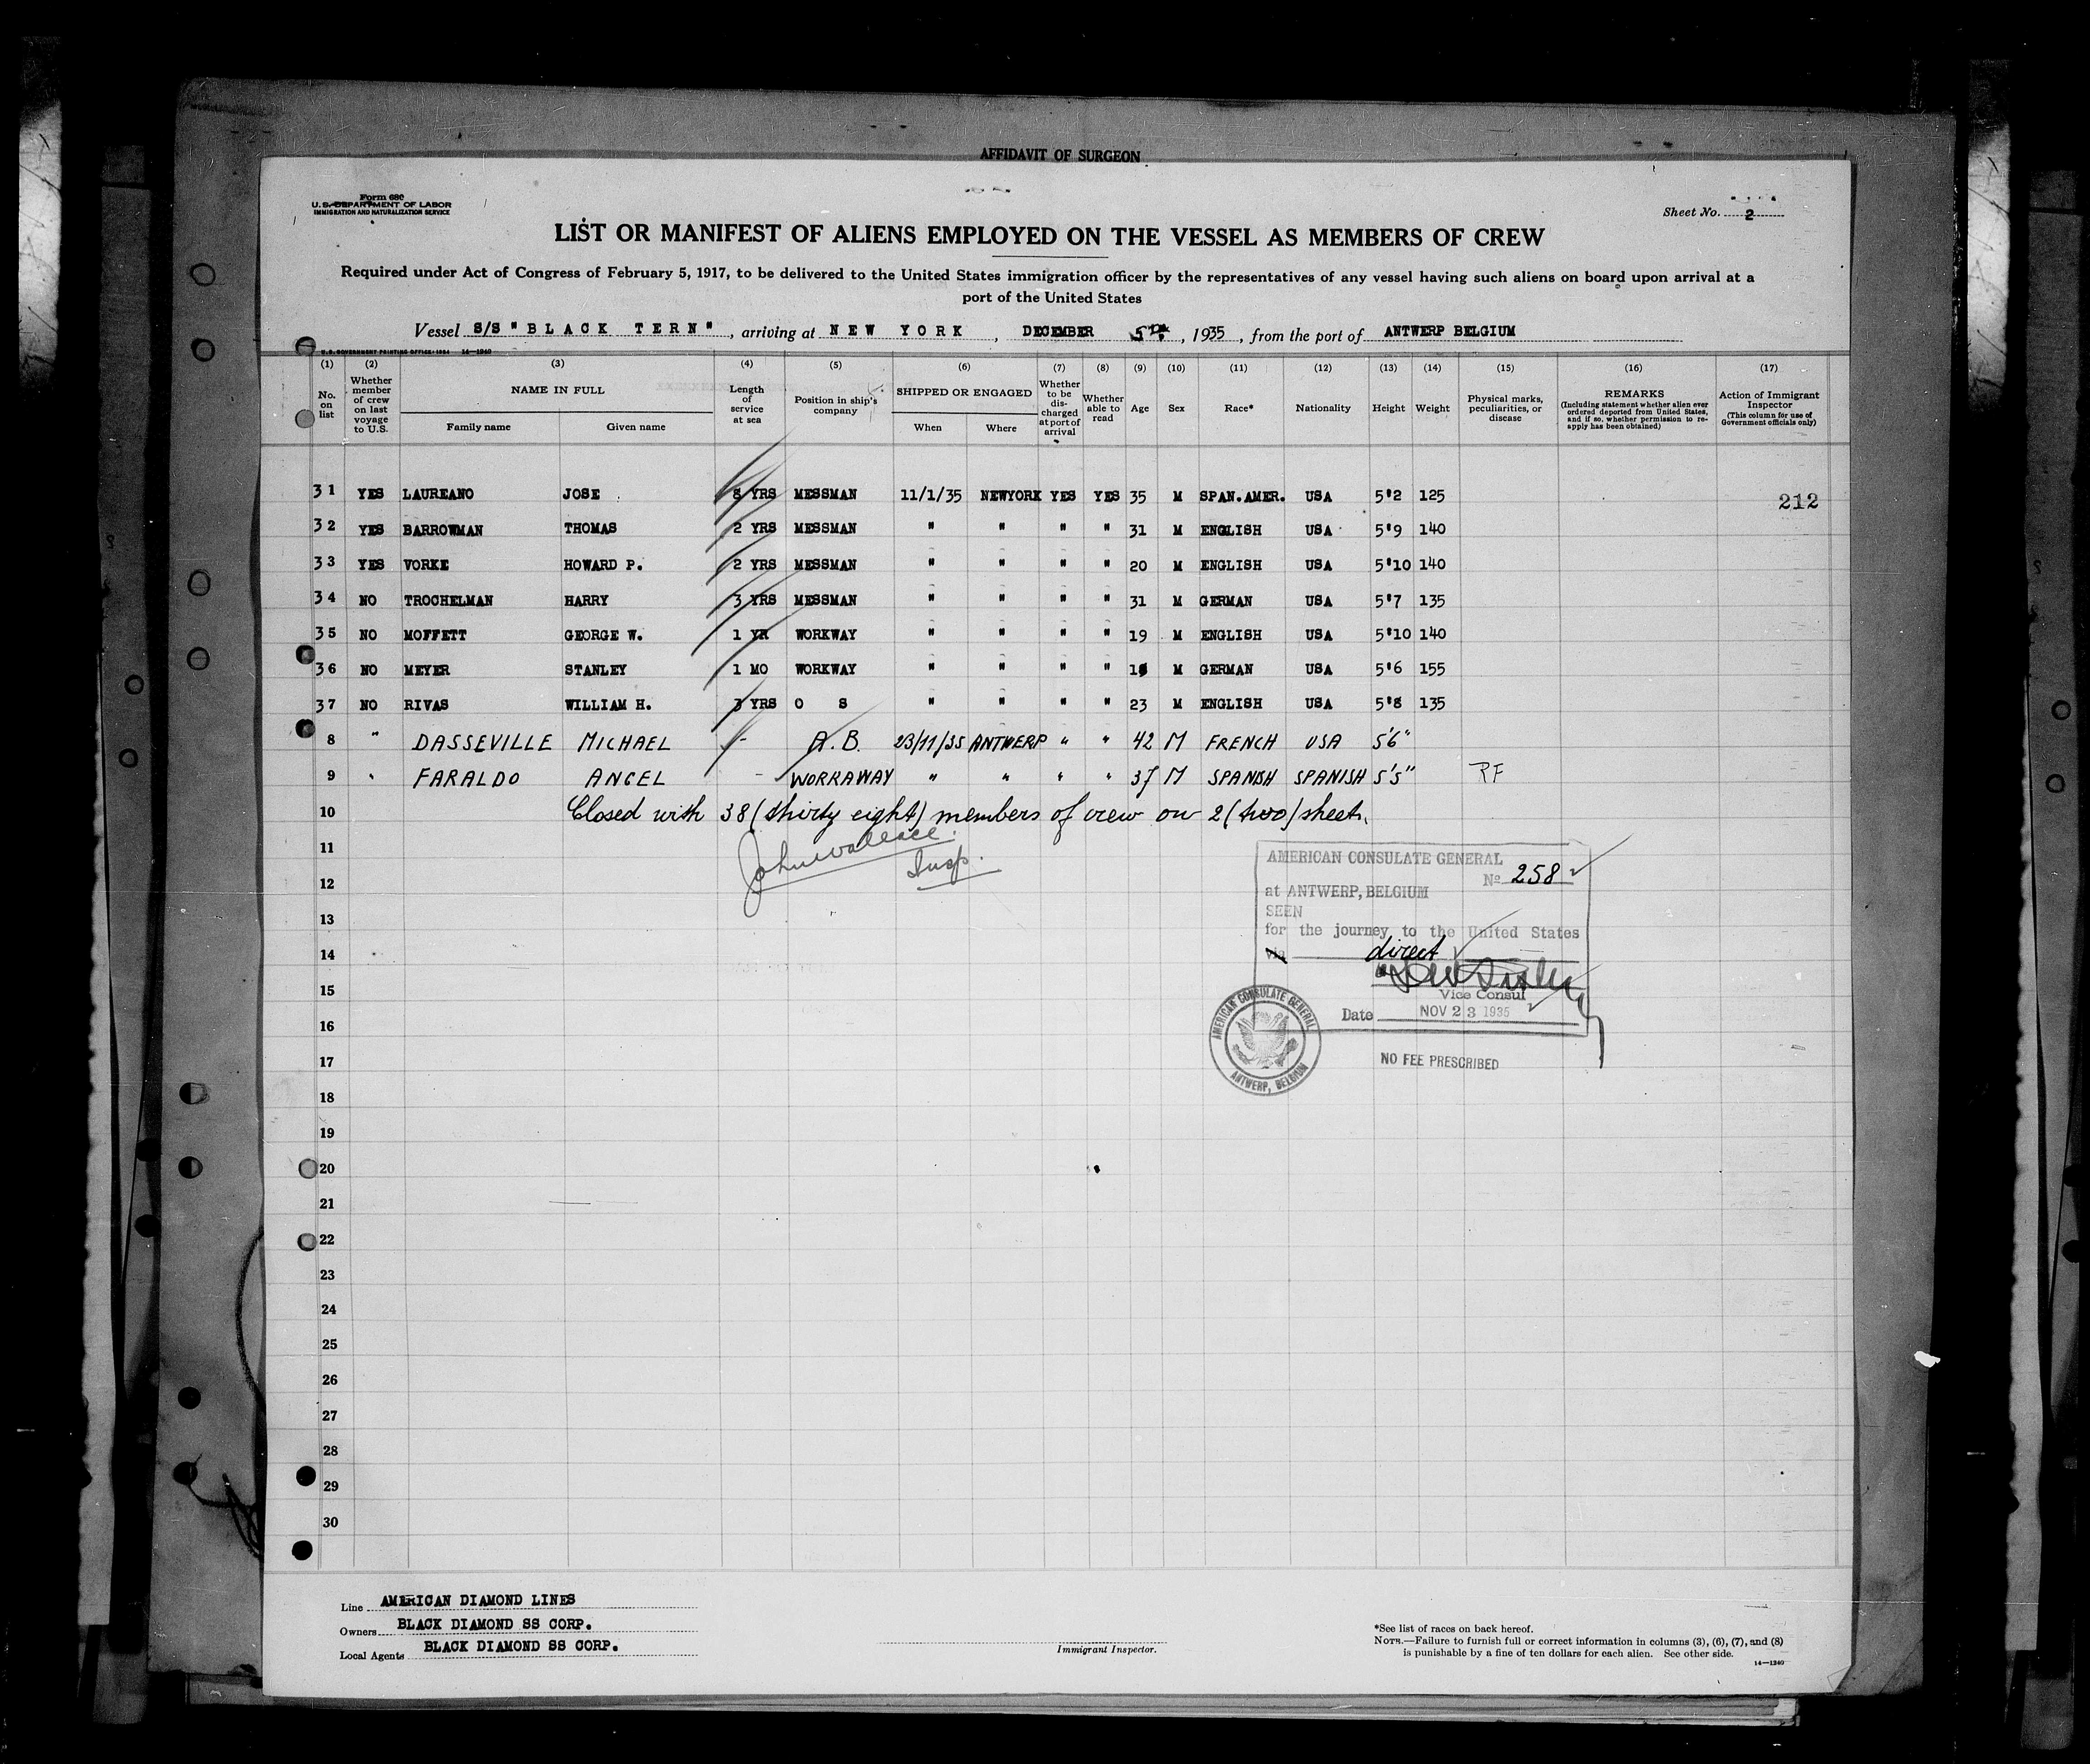 AFFIDAVIT OF SURGEON
Form 680
U. S. DEPARTMENT OF LABOR
IMMIGRATION AND NATURALIZATION SERVICE
Sheet No. 2
LIST OR MANIFEST OF ALIENS EMPLOYED ON THE VESSEL AS MEMBERS OF CREW
Required under Act of Congress of February 5, 1917, to be delivered to the United States immigration officer by the representatives of any vessel having such aliens on board upon arrival at a
port of the United States
Vessel S/S "BLACK TERN", arriving at NEW YORK, DECEMBER 5TH, 1935, from the port of ANTWERP BELGIUM
U.S. GOVERNMENT PRINTING OFFICE: 1934 14—1240
(1) (2) (3) (4) (5) (6) (7) (8) (9) (10) (11) (12) (13) (14) (15) (16) (17)
No. on list
Whether member of crew on last voyage to U.S.
NAME IN FULL
Family name
Given name
Length of service at sea
Position in ship's company
SHIPPED OR ENGAGED
When
Where
Whether to be discharged at port of arrival
Whether able to read
Age
Sex
Race*
Nationality
Height
Weight
Physical marks, peculiarities, or disease
REMARKS
(Including statement whether alien ever ordered deported from United States, and if so, whether permission to re-apply has been obtained)
Action of Immigrant Inspector
(This column for use of Government officials only)
31 YES LAUREANO JOSE 8 YRS MESSMAN 11/1/35 NEWYORK YES YES 35 M SPAN.AMER. USA 5'2 125
212
32 YES BARROWMAN THOMAS 2 YRS MESSMAN " " " " 31 M ENGLISH USA 5'9 140
33 YES VORKE HOWARD P. 2 YRS MESSMAN " " " " 20 M ENGLISH USA 5'10 140
34 NO TROCHELMAN HARRY 3 YRS MESSMAN " " " " 31 M GERMAN USA 5'7 135
35 NO MOFFETT GEORGE W. 1 YR WORKWAY " " " " 19 M ENGLISH USA 5'10 140
36 NO MEYER STANLEY 1 MO WORKWAY " " " " M GERMAN USA 5'6 155
37 NO RIVAS WILLIAM H. 3 YRS O S " " " " 23 M ENGLISH USA 5'8 135
8 " DASSEVILLE MICHAEL - A.B. 23/11/35 ANTWERP " " 42 M FRENCH USA 5'6"
9 " FARALDO ANGEL - WORKAWAY " " " " 37 M SPANISH SPANISH 5'5" RF
10 Closed with 38 (thirty eight) members of crew on 2 (two) sheets.
11 John Wallace
12 Insp.
AMERICAN CONSULATE GENERAL
No 258
at ANTWERP, BELGIUM
SEEN
for the journey to the United States
via direct
Vice Consul
Date NOV 23 1935
AMERICAN CONSULATE GENERAL
ANTWERP, BELGIUM
NO FEE PRESCRIBED
13
14
15
16
17
18
19
20
21
22
23
24
25
26
27
28
29
30
Line AMERICAN DIAMOND LINES
Owners BLACK DIAMOND SS CORP.
Local Agents BLACK DIAMOND SS CORP.
Immigrant Inspector.
*See list of races on back hereof.
NOTE.—Failure to furnish full or correct information in columns (3), (6), (7), and (8)
is punishable by a fine of ten dollars for each alien. See other side.
14—1240